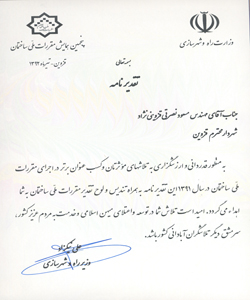 وزارت راه و شهرسازی
پنجمین همایش مقررات ملی ساختمان
قزوین - تیرماه ۱۳۹۲
بسمه تعالی
تقدیرنامه
جناب آقای مهندس مسعود نصرتی قزوینی نژاد
شهردار محترم قزوین
به منظور قدردانی و ارزشگزاری به تلاشهای مؤثرتان و کسب عنوان برتر در اجرای مقررات
ملی ساختمان در سال ۱۳۹۱ این تقدیرنامه به همراه تندیس و لوح تقدیر مقررات ملی ساختمان به شما
اهداء می گردد. امید است تلاش شما در توسعه و اعتلای میهن اسلامی و خدمت به مردم عزیز کشور،
سرمشق دیگر تلاشگران آبادانی کشور باشد.
علی نیکزاد
وزیر راه و شهرسازی